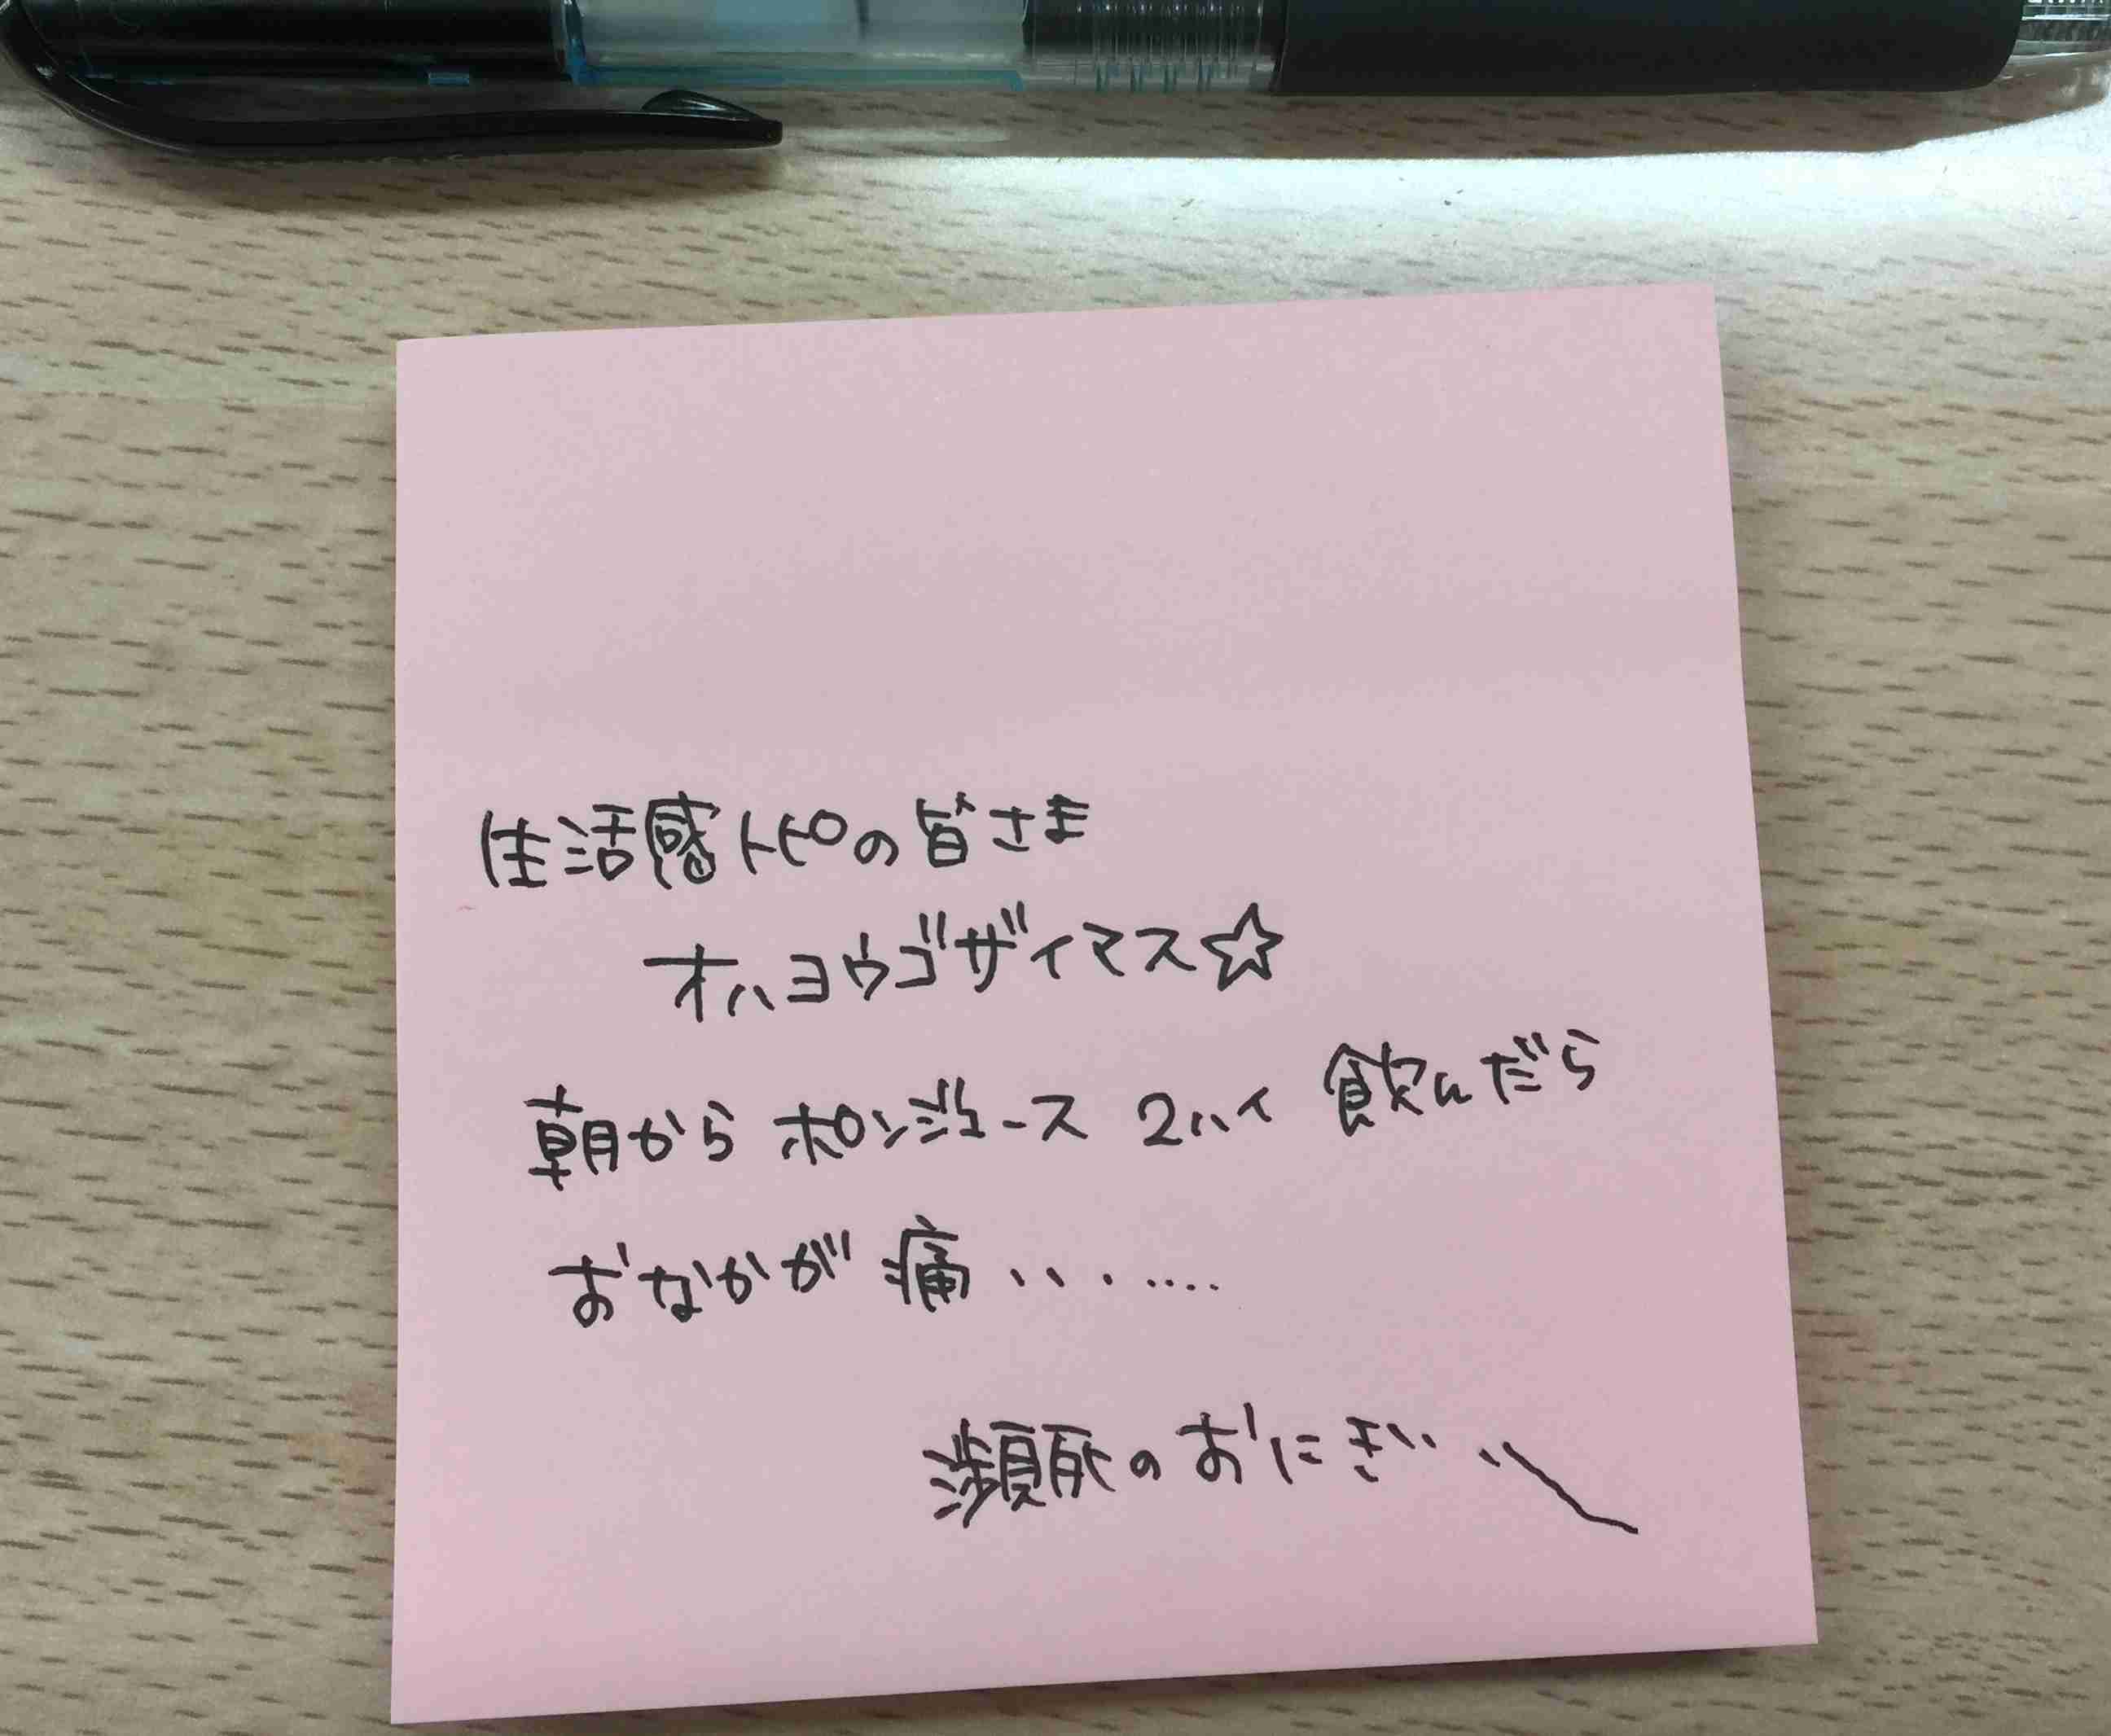 生活感トピの皆さま
オハヨウゴザイマス☆
朝からポンジュース 2ハイ 飲んだら
おなかが 痛.........
瀕死のおにぎ